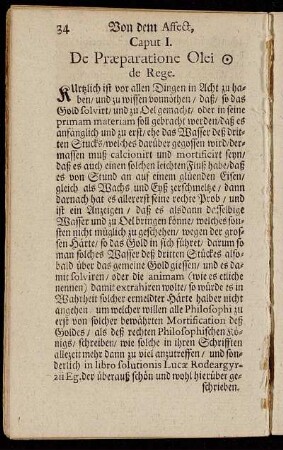 34 Von dem Affect,
Caput I.
De Præparatione Olei ☉
de Rege.
KUrtzlich ist vor allen Dingen in Acht zu ha-
ben / und zu wissen vonnöthen / daß / so das
Gold solvirt / und zu Oel gemacht / oder in seine
primam materiam soll gebracht werden / daß es
anfänglich und zu erst / ehe das Wasser deß drit-
ten Stucks / welches darüber gegossen wird / der-
massen muß calcionirt und mortificirt seyn /
daß es auch einen solchen leichten Fluß habe / daß
es von Stund an auf einem glüenden Eisen /
gleich als Wachs und Eyß zerschmeltze / dann
darnach hat es allererst seine rechte Prob / und
ist ein Anzeigen / daß es alsdann dasselbige
Wasser und zu Oel bringen könne / welches son-
sten nicht müglich zu geschehen / wegen der gros-
sen Härte / so das Gold in sich führet / darum so
man solches Wasser deß dritten Stückes also-
bald über das gemeine Gold giessen / und es da-
mit solviren / oder die animam (wie es etliche
nennen) damit extrahiren wolte / so würde es in
Wahrheit solcher ermeldter Härte halber nicht
angehen / um welcher willen alle Philosophi zu
erst von solcher bewährten Mortification deß
Goldes / als deß rechten Philosophischen Kö-
nigs / schreiben / wie solche in ihren Schrifften
allezeit mehr dann zu viel anzutreffen / und son-
derlich in libro solutionis Lucæ Rodeargyr-
zii Eg. der überauß schön und wohl hierüber ge-
schrieben.